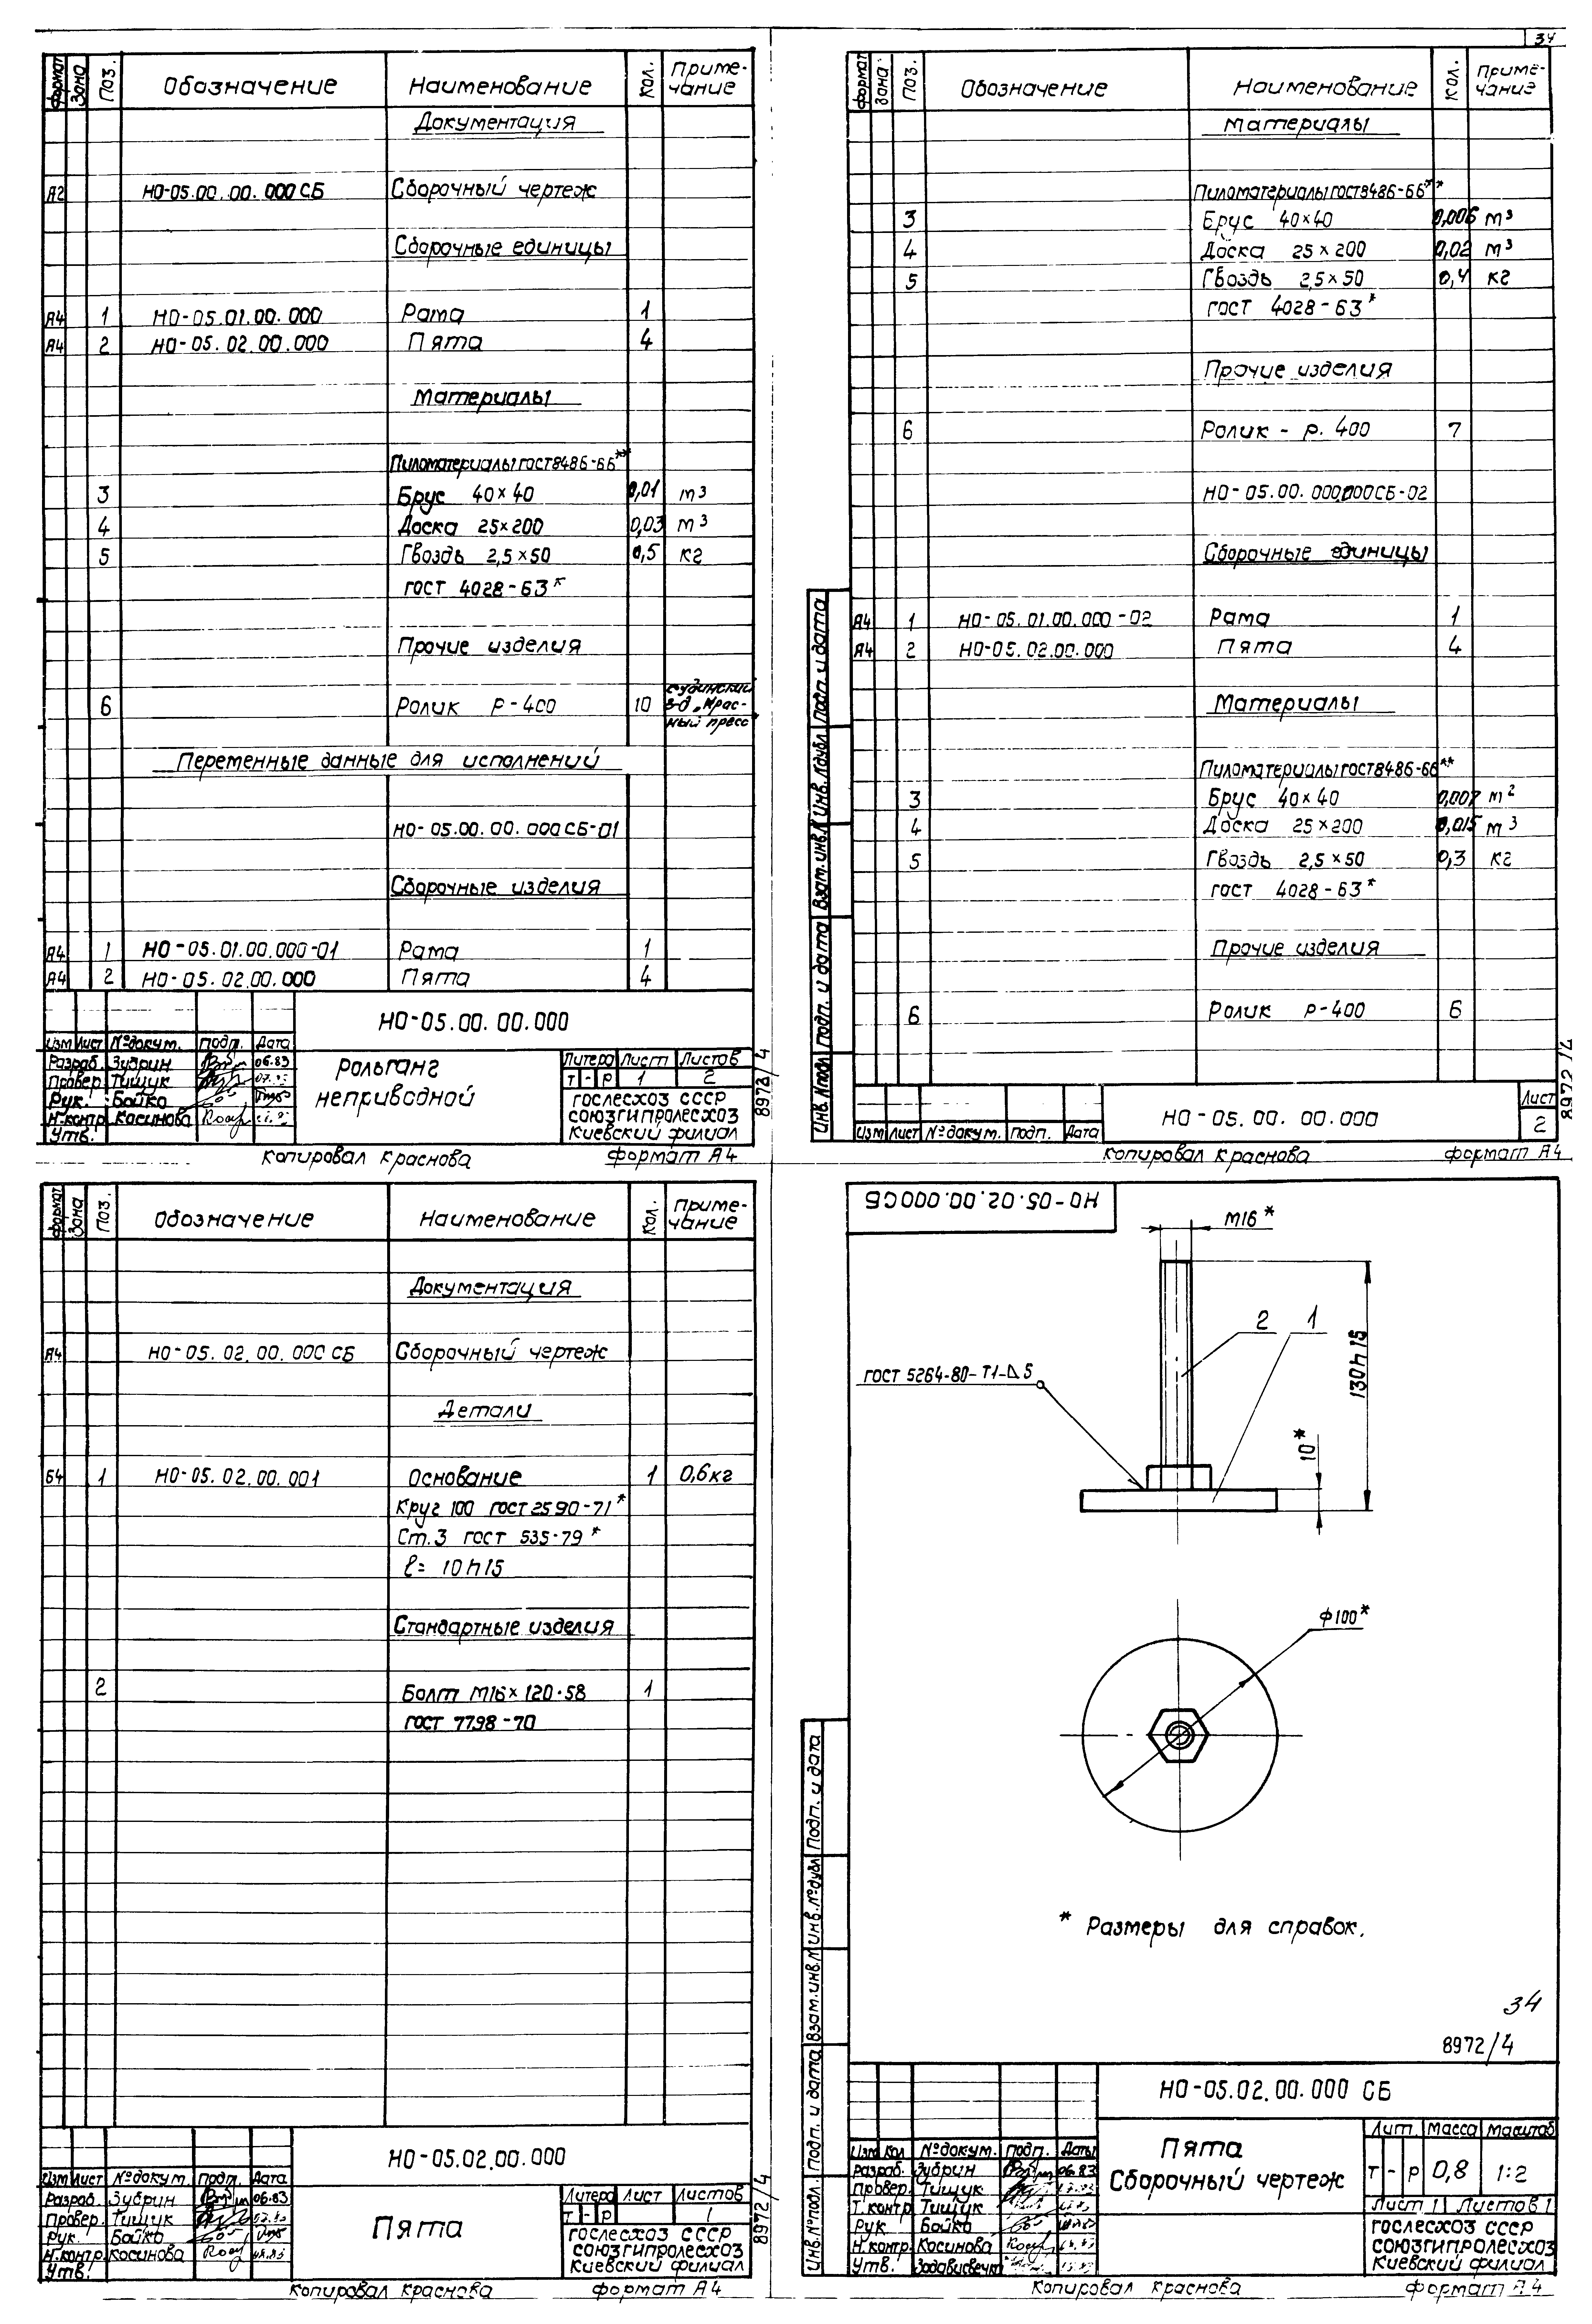 34
Формат Зона Поз. Обозначение Наименование Кол. Приме-
чание
Документация
А2 НО-05.00.00.000СБ Сборочный чертеж
Сборочные единицы
А4 1 НО-05.01.00.000 Рама 1
А4 2 НО-05.02.00.000 Пята 4
Материалы
Пиломатериалы ГОСТ 8486-66**
3 Брус 40×40 0,01 м3
4 Доска 25×200 0,03 м3
5 Гвоздь 2,5×50 0,5 кг
ГОСТ 4028-63*
Прочие изделия
6 Ролик Р-400 10
з-д „Крас-
ный пресс"
Переменные данные для исполнений
НО-05.00.00.000СБ-01
Сборочные изделия
А4 1 НО-05.01.00.000-01 Рама 1
А4 2 НО-05.02.00.000 Пята 4
НО-05.00.00.000
Изм Лист № докум. Подп. Дата
Разраб. Зубрин 06.83
Провер. Тищук
Рук. Бойко
Н.контр. Косинова
Утв.
Рольганг
неприводной
Литера Лист Листов
Т - Р 1 2
ГОСЛЕСХОЗ СССР
СОЮЗГИПРОЛЕСХОЗ
Киевский филиал
8972/4
Копировал Краснова Формат А4
Формат Зона Поз. Обозначение Наименование Кол. Приме-
чание
Материалы
Пиломатериалы ГОСТ 8486-66**
3 Брус 40×40 0,006 м3
4 Доска 25×200 0,02 м3
5 Гвоздь 2,5×50 0,4 кг
ГОСТ 4028-63*
Прочие изделия
6 Ролик - р. 400 7
НО-05.00.000.000СБ-02
Сборочные единицы
А4 1 НО-05.01.00.000-02 Рама 1
А4 2 НО-05.02.00.000 Пята 4
Материалы
Пиломатериалы ГОСТ 8486-66**
3 Брус 40×40 0,007 м2
4 Доска 25×200 0,015 м3
5 Гвоздь 2,5×50 0,3 кг
ГОСТ 4028-63*
Прочие изделия
6 Ролик Р-400 6
Инв. № подл. Подп. и дата Взам. инв. № Инв. № дубл. Подп. и дата
Изм Лист № докум. Подп. Дата
НО-05.00.00.000
Лист
2
8972/4
Копировал Краснова Формат А4
Формат Зона Поз. Обозначение Наименование Кол. Приме-
чание
Документация
А4 НО-05.02.00.000СБ Сборочный чертеж
Детали
Б4 1 НО-05.02.00.001 Основание 1 0,6кг
Круг 100 ГОСТ 2590-71*
Ст.3 ГОСТ 535-79*
ℓ= 10h15
Стандартные изделия
2 Болт М16×120.58 1
ГОСТ 7798-70
НО-05.02.00.000
Изм Лист № докум. Подп. Дата
Разраб. Зубрин 06.83
Провер. Тищук
Рук. Бойко
Н.контр. Косинова
Утв.
Пята
Литера Лист Листов
Т - Р 1
ГОСЛЕСХОЗ СССР
СОЮЗГИПРОЛЕСХОЗ
Киевский филиал
8972/4
Копировал Краснова Формат А4
НО-05.02.00.000СБ
М16*
2 1
ГОСТ 5264-80-Т1-⊿5
130h15
10*
ϕ100*
* Размеры для справок.
34
8972/4
Инв. № подл Подп. и дата Взам. инв. № Инв. № дубл Подп. и дата
НО-05.02.00.000 СБ
Изм Кол № докум. Подп. Даты
Разраб. Зубрин 06.83
Провер. Тищук
Т.контр. Тищук
Рук. Бойко
Н.контр. Косинова
Утв.
Пята
Сборочный чертеж
Лит. Масса Масштаб
Т - Р 0,8 1:2
Лист 1 Листов 1
ГОСЛЕСХОЗ СССР
СОЮЗГИПРОЛЕСХОЗ
Киевский филиал
Копировал Краснова Формат А4